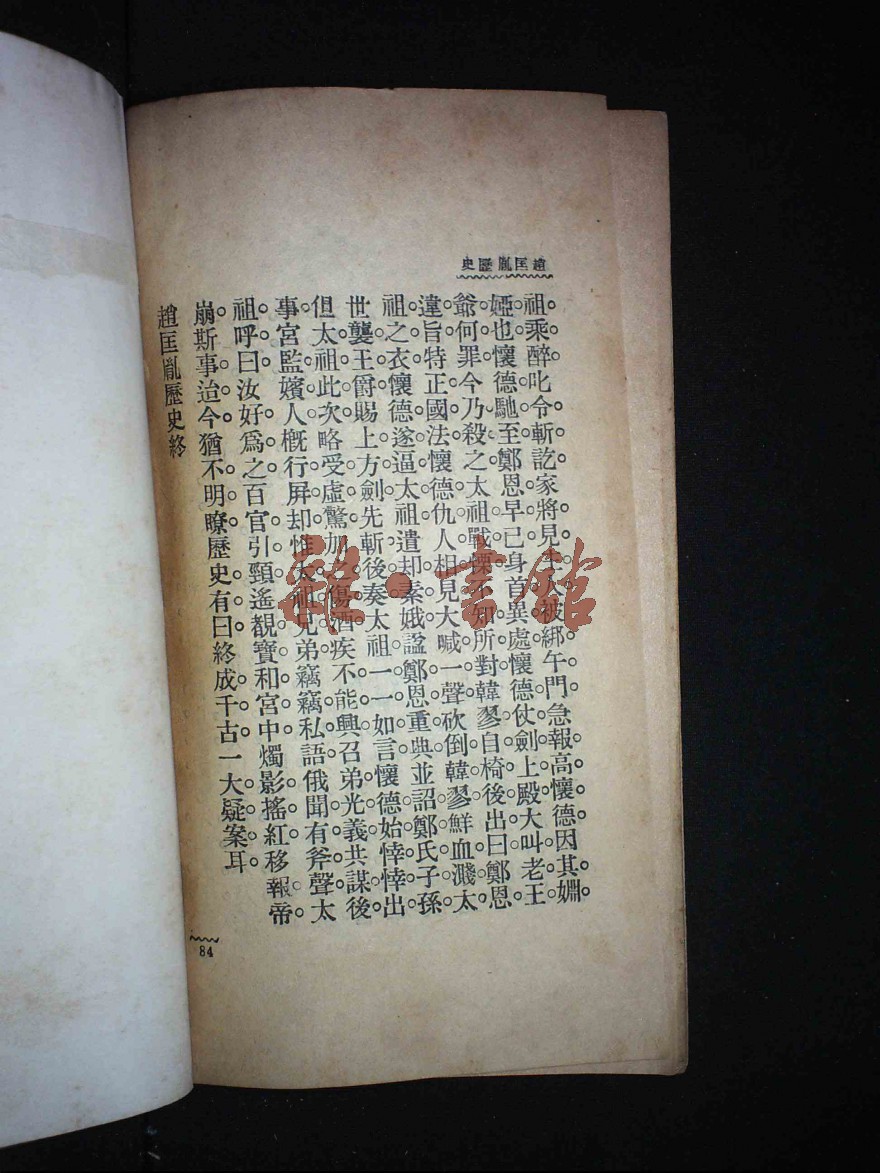 趙匡胤歷史
祖。乘醉叱令斬訖。家將見主人被綁午門。急報高懷德。因其姻
婭也。懷德馳至。鄭恩早已身首異處。懷德仗劍上殿。大叫老王
爺何罪。今乃殺之。太祖戰慄。不知所對。韓㚞自椅後出曰。鄭恩
違旨。特正國法。懷德仇人相見。大喊一聲。砍倒韓㚞。鮮血濺太
祖之衣。懷德遂逼太祖遣却素娥。諡鄭恩重典。並詔鄭氏子孫
世襲王爵。賜上方劍。先斬後奏。太祖一一如言。懷德始悻悻出。
但太祖此次略受虛驚。加之傷酒。疾不能興。召弟光義共謀後
事。宮監嬪人。槪行屏却。惟太祖兄弟。竊竊私語。俄聞有斧聲。太
祖呼曰。汝好爲之。百官引頸遙覩寶和宮中。燭影搖紅。移報帝
崩。斯事迨今。猶不明瞭。歷史有曰。終成千古一大疑案耳。
趙匡胤歷史終
84
龍·書館